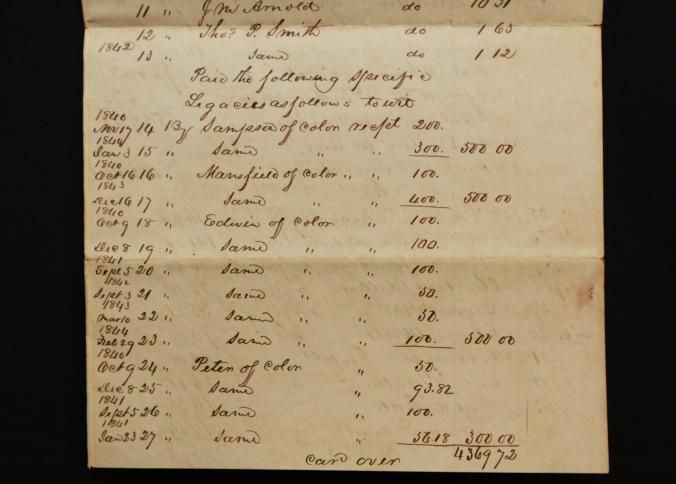 11 " J M Arnold do 10 31
12 " Thos P. Smith do 1 63
1842
13 " same do 1 12
Paid the following Specific
Legacies as follows towit
1840
Nov 17 14 By Sampson of Color recpt 200.
1844
Jan 3 15 " same " " 300. 500 00
1840
Oct 16 16 " Mansfield of Color " " 100.
1843
Dec 16 17 " same " " 400. 500 00
1840
Oct 9 18 " Edwin of Color " 100.
Dec 8 19 " same " " 100.
1841
Sept 5 20 " same " " 100.
1842
Sept 3 21 " same " " 50.
1843
Mar 10 22 " same " " 50.
1844
Feb 29 23 " same " " 100. 500 00
1840
Oct 9 24 " Peter of Color " 50.
Dec 8 25 " same " 93.82
1841
Sept 5 26 " same " 100.
1841
Jan 23 27 " same " 56.18 300 00
Card over 4369 72